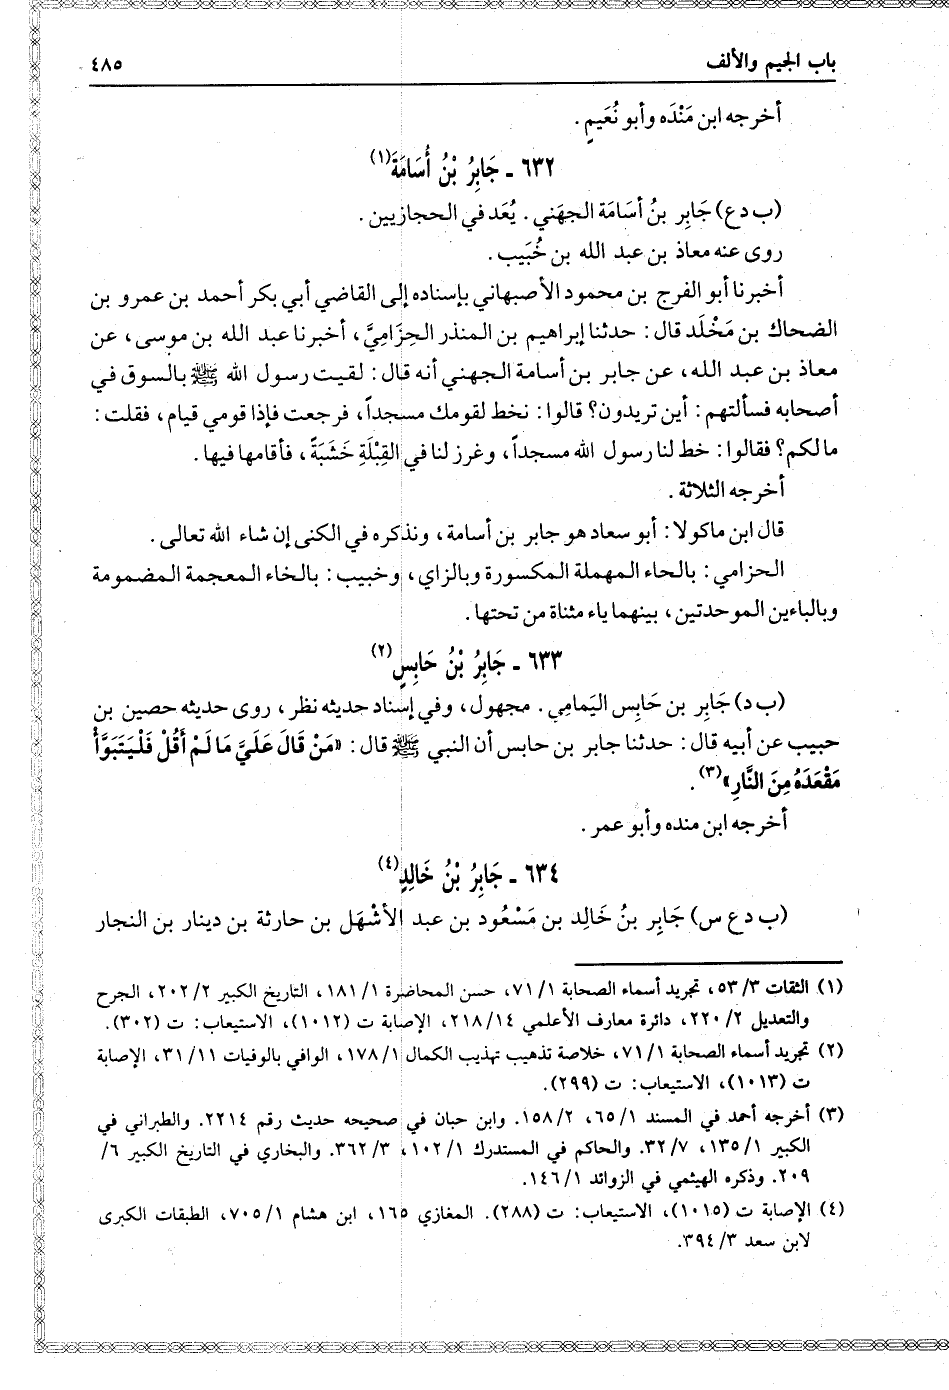 باب الجيم والألف ٤٨٥
أخرجه ابن مَنْدَه وأبو نُعَيمٍ.
٦٣٢ ـ جَابِرُ بْنُ أُسَامَةَ(١)
(ب د ع) جَابِر بنُ أسَامَة الجهَني. يُعَد في الحجازيين.
روى عنه معاذ بن عبد الله بن خُبَيب.
أخبرنا أبو الفرج بن محمود الأصبهاني بإسناده إلى القاضي أبي بكر أحمد بن عمرو بن
الضحاك بن مَخْلَد قال: حدثنا إبراهيم بن المنذر الحِزَامِيَّ، أخبرنا عبد الله بن موسى، عن
معاذ بن عبد الله، عن جابر بن أسامة الجهني أنه قال: لقيت رسول الله ﷺ بالسوق في
أصحابه فسألتهم: أين تريدون؟ قالوا: نخط لقومك مسجداً، فرجعت فإذا قومي قيام، فقلت:
ما لكم؟ فقالوا: خط لنا رسول الله مسجداً، وغرز لنا في القِبْلَةِ خَشَبَةً، فأقامها فيها.
أخرجه الثلاثة.
قال ابن ماكولا: أبو سعاد هو جابر بن أسامة، ونذكره في الكنى إن شاء الله تعالى.
الحزامي: بالحاء المهملة المكسورة وبالزاي، وخبيب: بالخاء المعجمة المضمومة
وبالباءين الموحدتين، بينهما ياء مثناة من تحتها.
٦٣٣ ـ جَابِرُ بْنُ حَابِسٍ(٢)
(ب د) جَابِر بن حَابِس اليَمامِي. مجهول، وفي إسناد حديثه نظر، روى حديثه حصين بن
حبيب عن أبيه قال: حدثنا جابر بن حابس أن النبي ﷺ قال: «مَنْ قَالَ عَلَيَّ مَا لَمْ أَقُلْ فَلْيَتَبَوَّأْ
مَقْعَدَهُ مِنَ النَّارِ»(٣).
أخرجه ابن منده وأبو عمر.
٦٣٤ ـ جَابِرُ بْنُ خَالِدٍ(٤)
(ب د ع س) جَابِر بنُ خَالِد بن مَسْعُود بن عبد الأشْهَل بن حارثة بن دينار بن النجار
(١) الثقات ٣/ ٥٣، تجريد أسماء الصحابة ١/ ٧١، حسن المحاضرة ١/ ١٨١، التاريخ الكبير ٢/ ٢٠٢، الجرح
والتعديل ٢/ ٢٢٠، دائرة معارف الأعلمي ١٤/ ٢١٨، الإصابة ت (١٠١٢)، الاستيعاب: ت (٣٠٢).
(٢) تجريد أسماء الصحابة ١/ ٧١، خلاصة تذهيب تهذيب الكمال ١/ ١٧٨، الوافي بالوفيات ١١/ ٣١، الإصابة
ت (١٠١٣)، الاستيعاب: ت (٢٩٩).
(٣) أخرجه أحمد في المسند ١/ ٦٥، ٢/ ١٥٨. وابن حبان في صحيحه حديث رقم ٢٢١٤. والطبراني في
الكبير ١/ ١٣٥، ٧/ ٣٢. والحاكم في المستدرك ١/ ١٠٢، ٣/ ٣٦٢. والبخاري في التاريخ الكبير ٦/
٢٠٩. وذكره الهيثمي في الزوائد ١/ ١٤٦.
(٤) الإصابة ت (١٠١٥)، الاستيعاب: ت (٢٨٨). المغازي ١٦٥، ابن هشام ١/ ٧٠٥، الطبقات الكبرى
لابن سعد ٣/ ٣٩٤.